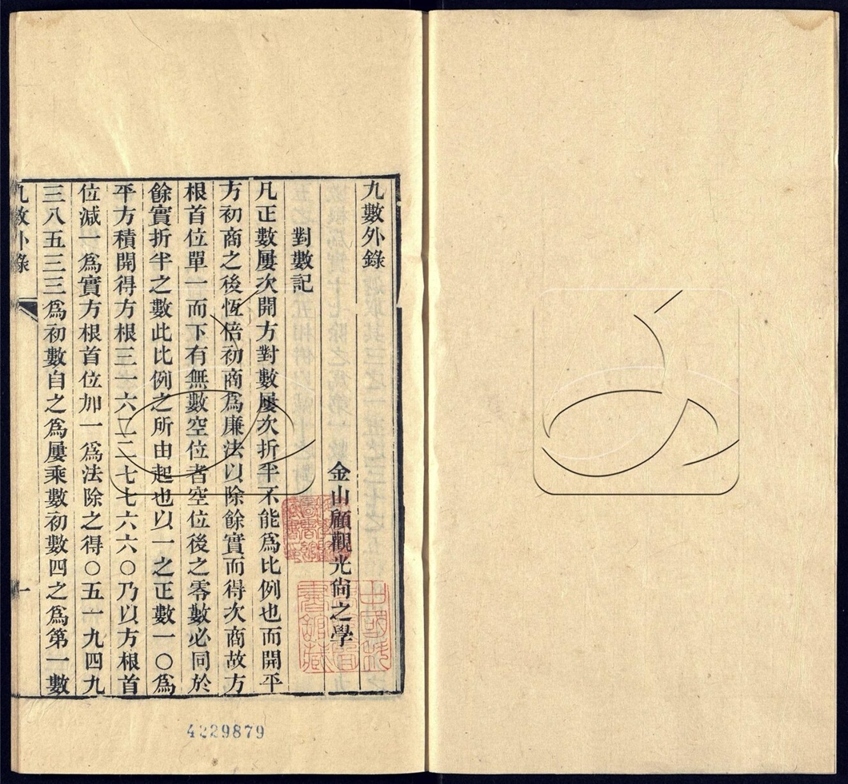 九數外錄
金山顧觀光尙之學
對數記
凡正數屢次開方對數屢次折半不能爲比例也而開平
方初商之後恆倍初商爲廉法以除餘實而得次商故方
根首位單一而下有無數空位者空位後之零數必同於
餘實折半之數此比例之所由起也以一之正數一〇爲
平方積開得方根三一六二二七七六六〇乃以方根首
位減一爲實方根首位加一爲法除之得〇五一九四九
三八五三三爲初數自之爲屢乘數初數四之爲第一數
九數外錄
一
4229879